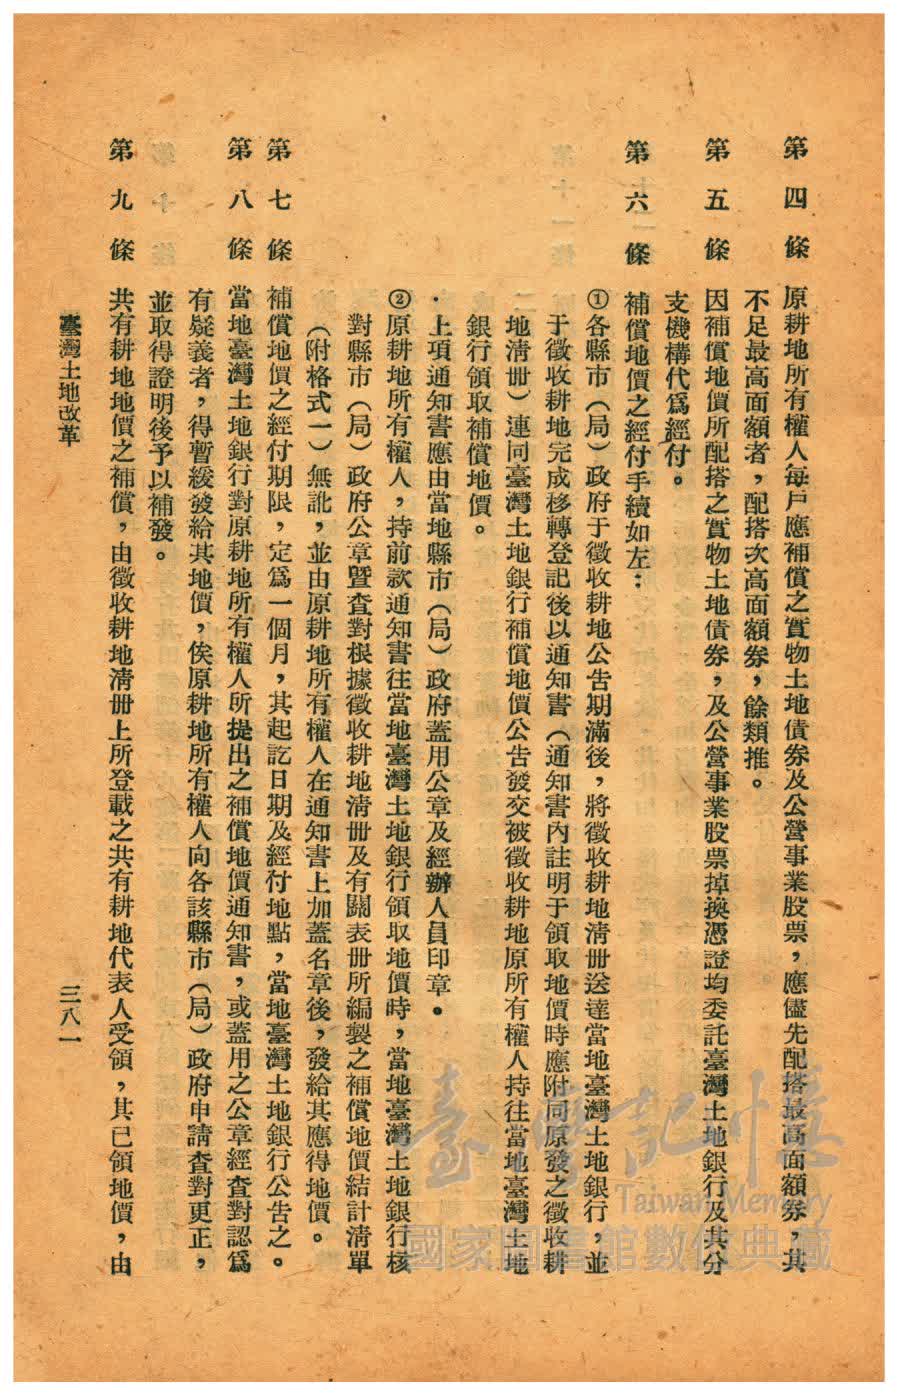 第四條　原耕地所有權人每戶應補償之實物土地債券及公營事業股票，應儘先配搭最高面額券，其
不足最高面額者，配搭次高面額券，餘類推。
第五條　因補償地價所配搭之實物土地債券，及公營事業股票掉換憑證均委託臺灣土地銀行及其分
支機構代爲經付。
第六條　補償地價之經付手續如左：
①各縣市（局）政府于徵收耕地公告期滿後，將徵收耕地清冊送達當地臺灣土地銀行，並
于徵收耕地完成移轉登記後以通知書（通知書內註明于領取地價時應附同原發之徵收耕
地清冊）連同臺灣土地銀行補償地價公告發交被徵收耕地原所有權人持往當地臺灣土地
銀行領取補償地價。
．上項通知書應由當地縣市（局）政府蓋用公章及經辦人員印章。
②原耕地所有權人，持前款通知書往當地臺灣土地銀行領取地價時，當地臺灣土地銀行核
對縣市（局）政府公章暨查對根據徵收耕地清冊及有關表冊所編製之補償地價結計清單
（附格式一）無訛，並由原耕地所有權人在通知書上加蓋名章後，發給其應得地價。
第七條　補償地價之經付期限，定爲一個月，其起訖日期及經付地點，當地臺灣土地銀行公告之。
第八條　當地臺灣土地銀行對原耕地所有權人所提出之補償地價通知書，或蓋用之公章經查對認爲
有疑義者，得暫緩發給其地價，俟原耕地所有權人向各該縣市（局）政府申請查對更正，
並取得證明後予以補發。
第九條　共有耕地地價之補償，由徵收耕地清冊上所登載之共有耕地代表人受領，其已領地價，由
臺灣土地改革
三八一
臺灣記憶
Taiwan Memory
國家圖書館數位典藏